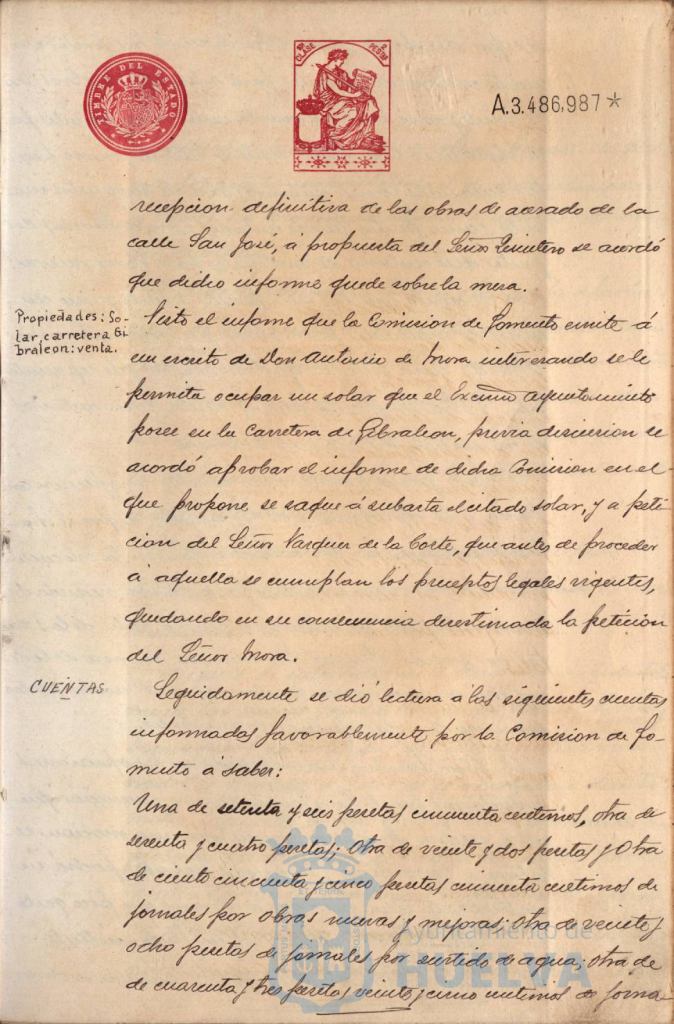 TIMBRE DEL ESTADO
10ª CLASE 2 PESTAS
A.3.486,987*
recepcion definitiva de las obras de acerado de la
calle San José, á propuesta del Señor Quintero se acordó
que dicho informe quede sobre la mesa.
Propiedades: So-
lar, carretera Gi-
braleon: venta.
Visto el informe que la Comision de Fomento emite á
un escrito de Don Antonio de Mora interesando se le
permita ocupar un solar que el Excmo Ayuntamiento
posee en la Carretera de Gibraleon, previa discusion se
acordó aprobar el informe de dicha Comision en el
que propone se saque á subasta el citado solar, y a peti-
cion del Señor Vazquez de la Corte, que antes de proceder
á aquella se cumplan los preceptos legales vigentes,
quedando en su consecuencia desestimada la petición
del Señor Mora.
CUENTAS
Seguidamente se dió lectura á las siguientes cuentas
informadas favorablemente por la Comision de Fo-
mento á saber:
Una de setenta y seis pesetas cincuenta centimos, otra de
sesenta y cuatro pesetas; otra de veinte y dos pesetas y otra
de ciento cincuenta y cinco pesetas cincuenta centimos de
jornales por obras nuevas y mejoras; otra de veinte y
ocho pesetas de jornales por surtido de agua; otra de
de cuarenta y tres pesetas veinte y cinco centimos de jorna-
Ayuntamiento de
HUELVA